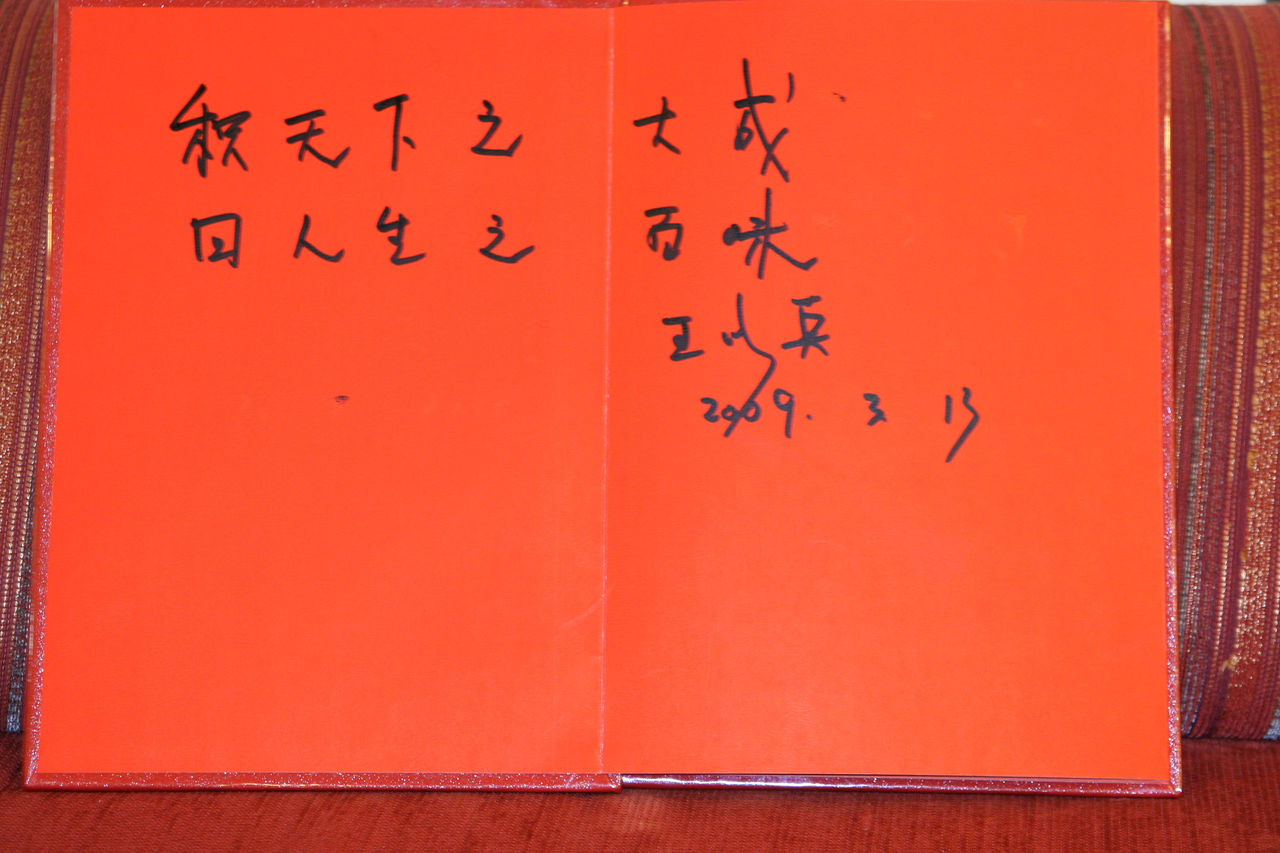 积天下之大成
曰人生之百味
王小兵
2009. 3 13